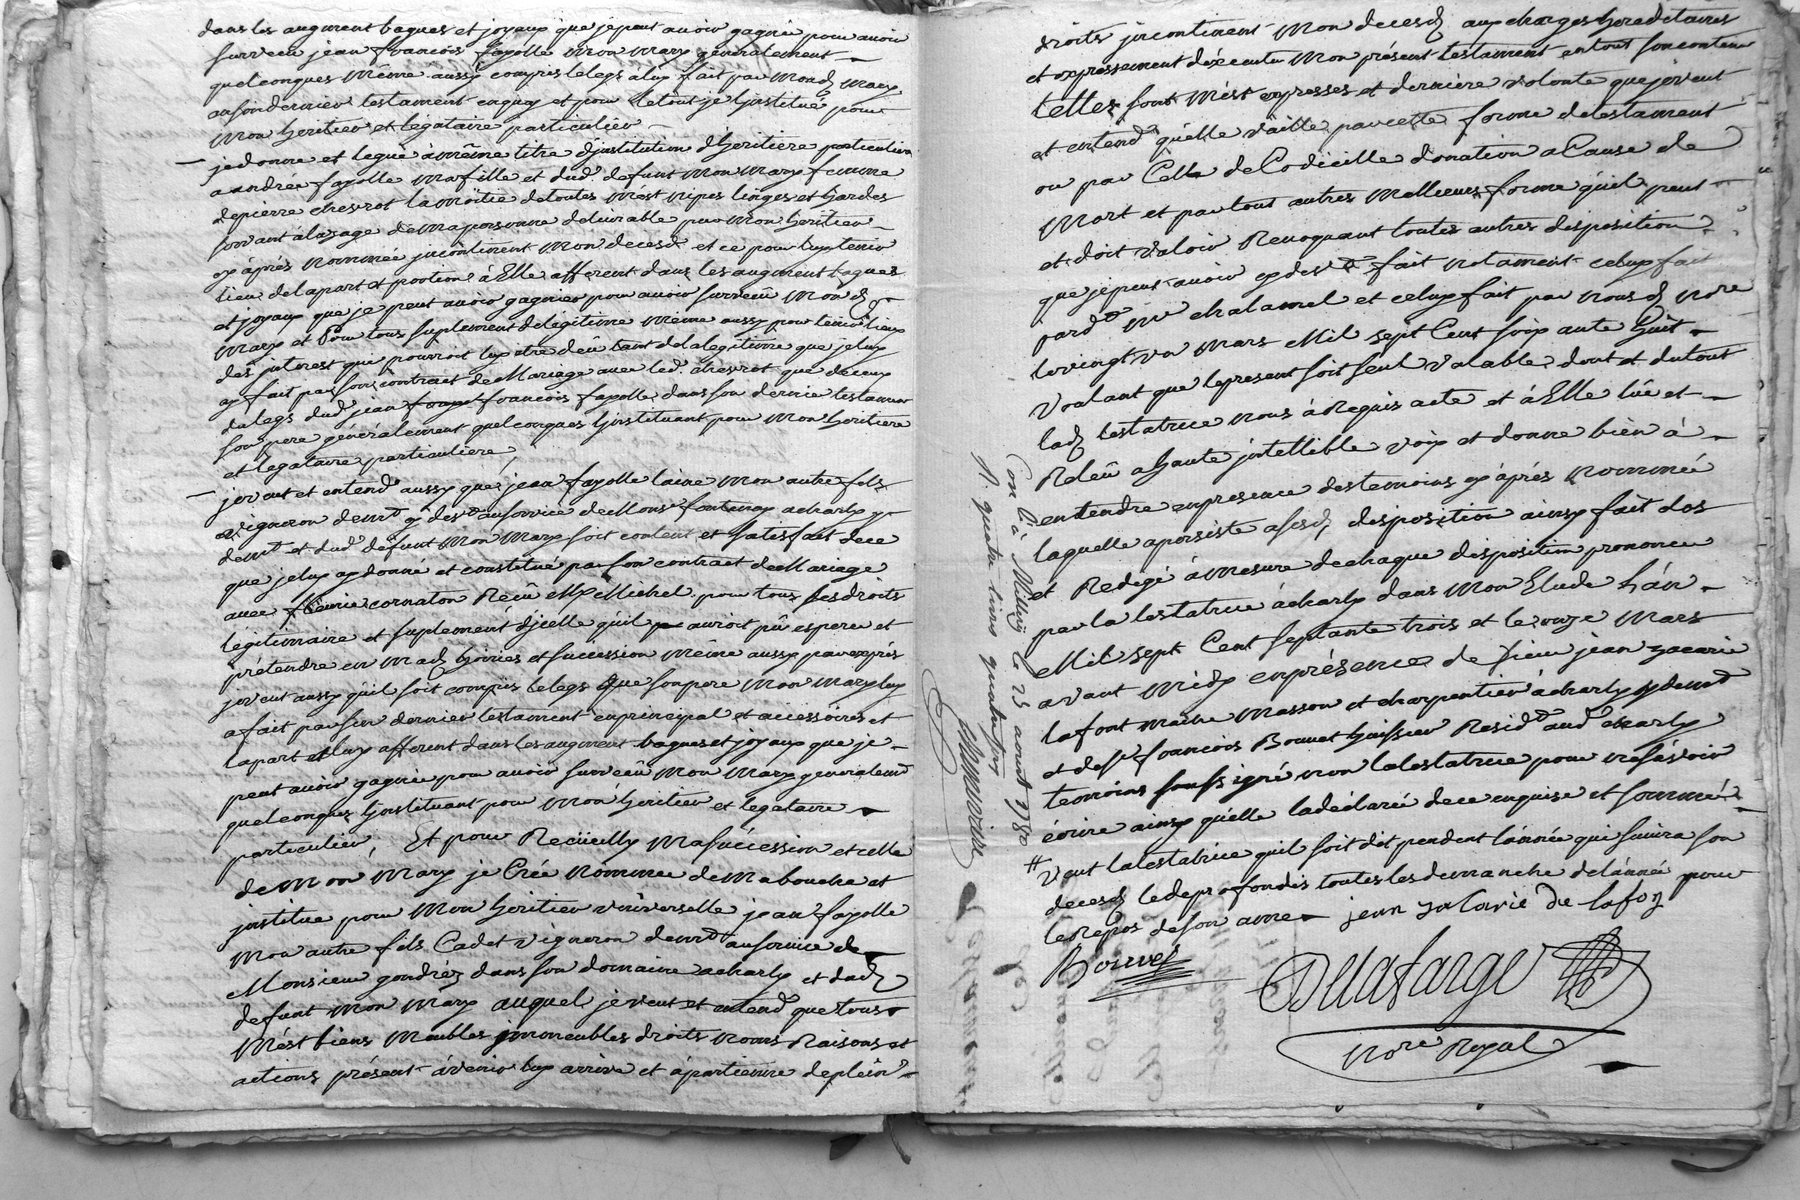 dans les augment bagues et joyaux que je peut avoir gagnée pour avoir
survecu jean francois fayolle mon mary généralement
quelconques même aussy compris le legs a luy fait par mond. mary
en son dernier testament et pour le tout je l'jnstitue pour
mon heritier et légataire particulier
je donne et legue à même titre d'jnstitution d'heritiere particuliere
a andrée fayolle ma fille et dud. defunt mon mary femme
de pierre chevrot la moitie de toutes mést nipes linges et hardes
servant à l'usage de ma personne delivrable par mon heritier
cy aprés nommée jncôntinent mon decesd. et ce pour luy tenir
lieu de la part et portion à Elle afferent dans les augment bagues
et joyaux que je peut avoir gagnier pour avoir survecû mond.
mary et Pour tous suplement de légitime même aussy pour tenir lieux
des jnterest que pourroit luy etre deû tant de la legitime que je luy
ay fait par son contract de Mariage avec led. chevrot que de ceux
du legs dud. jean francois fayolle dans son dernier testament
son pere généralement quelconques l'jnstituant pour mon heritiere
et legataire particuliere,
je veut et entend aussy que jean fayolle l'aine mon autre fils
vigneron demt. au service de Monsr. fontenay a charly
et dud. défunt mon mary soit content et satisfait de ce
que je luy ay donné et constitué par son contract de Mariage
avec cornaton Reçû Me. Michel pour tous ses droits
légitimaire et suplement d'jcelle qu'il auroit pû esperer et
prétendre en mad. hoiries et succession même aussy par exprés
je veut aussy qu'il soit compris le legs que son pere mon mary luy
a fait par son dernier testament en principal et accessoires et
la part et luy afferent dans les augment bagues et joyaux que je
peut avoir gagnée pour avoir survecû mon mary generalemt.
quelconques l'jnstituant pour mon heritier et legataire
particulier, Et pour Recüeilly ma succession et celle
de mon mary je Crée nomme de ma bouche et
jnstitue pour mon heritier vniverselle jean fayolle
mon autre fils Cadet vigneron demt. au service de
Monsieur gondréz dans son domaine a charly et dud.
defunt mon mary auquel je veut et entend que tous
mést biens meubles jmmeubles droits noms Raisons et
actions présent àvenir luy arrive et apartienne de plein
droits jncontinent mon decesd. aux charges hereditaires
et expressement d'éxecuter mon présent testament en tout son contenu
telles sont mést expresses et derniere volonte que je veut
et entend qu'elle vaille par cette forme de testament
ou par Celle de Codicille donation a Cause de
mort et par tout autres meilleurs forme qu'il peut
et doit valoir Revoquant toutes autres disposition
que je peut avoir cy devt. fait notament celuy fait
pardt. me. chalamel et celuy fait par nousd. nore.
le vingt un mars mil sept Cent soixante huit
voulant que le present soit seul valable dont et du tout
lad. testatrice nous à Requis acte et à Elle lûe et
Releû a haute jntellible voix et donne bien à
entendre en presence des temoins cy aprés nommée
laquelle a persiste a sesd. disposition ainsy fait clos
et Redigé à mesure de chaque disposition prononcée
par la testatrice à charly dans mon Etude l'an
mil sept Cent septante trois et le onze mars
avant midy en présence de sieur jean zacarie
lafont maitre masson et charpentier à charly y demt.
et de sr. francois Bouvet huissier Residt. aud. charly
temoins soussigné non la testatrice pour ne savoir
écrire ainsy qu'elle la déclarée de ce enquise et sommée
# veut la testatrice qu'il soit dit pendent l'année qui suivra son
decesd. le de profondis toutes les demanche de l'année pour
le Repos de son ame jean zacarie De lafon
Bouvet
Dellafarge
Nore. Royal
Conlé à Millery le 25 aoust 1780
R. quatre livres quatre sols